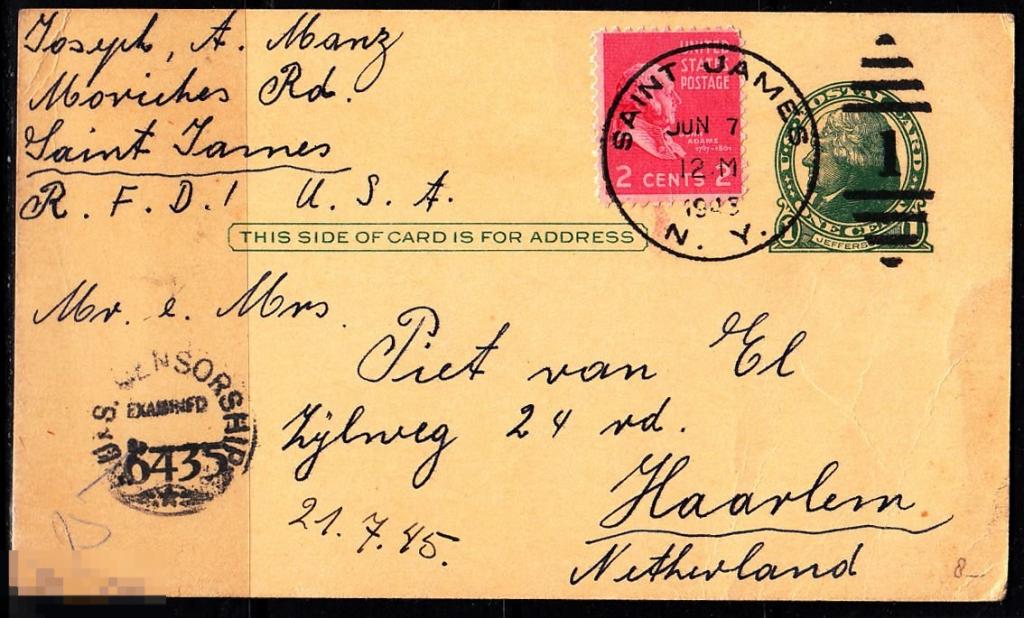 Joseph, A. Manz
Moriches Rd.
Saint James
R. F. D. 1 U. S. A.
UNITED
STATES
POSTAGE
ADAMS
1797-1801
2 CENTS 2
SAINT JAMES
JUN 7
12 M
1943
N. Y.
U.S. POSTAL CARD
1
ONE CENT
1 JEFFERSON 1
THIS SIDE OF CARD IS FOR ADDRESS
Mr. e. Mrs.
Piet van El
Zylweg 24 rd.
Haarlem
Netherland
21.7.45.
U.S. CENSORSHIP
EXAMINED
6435
8-